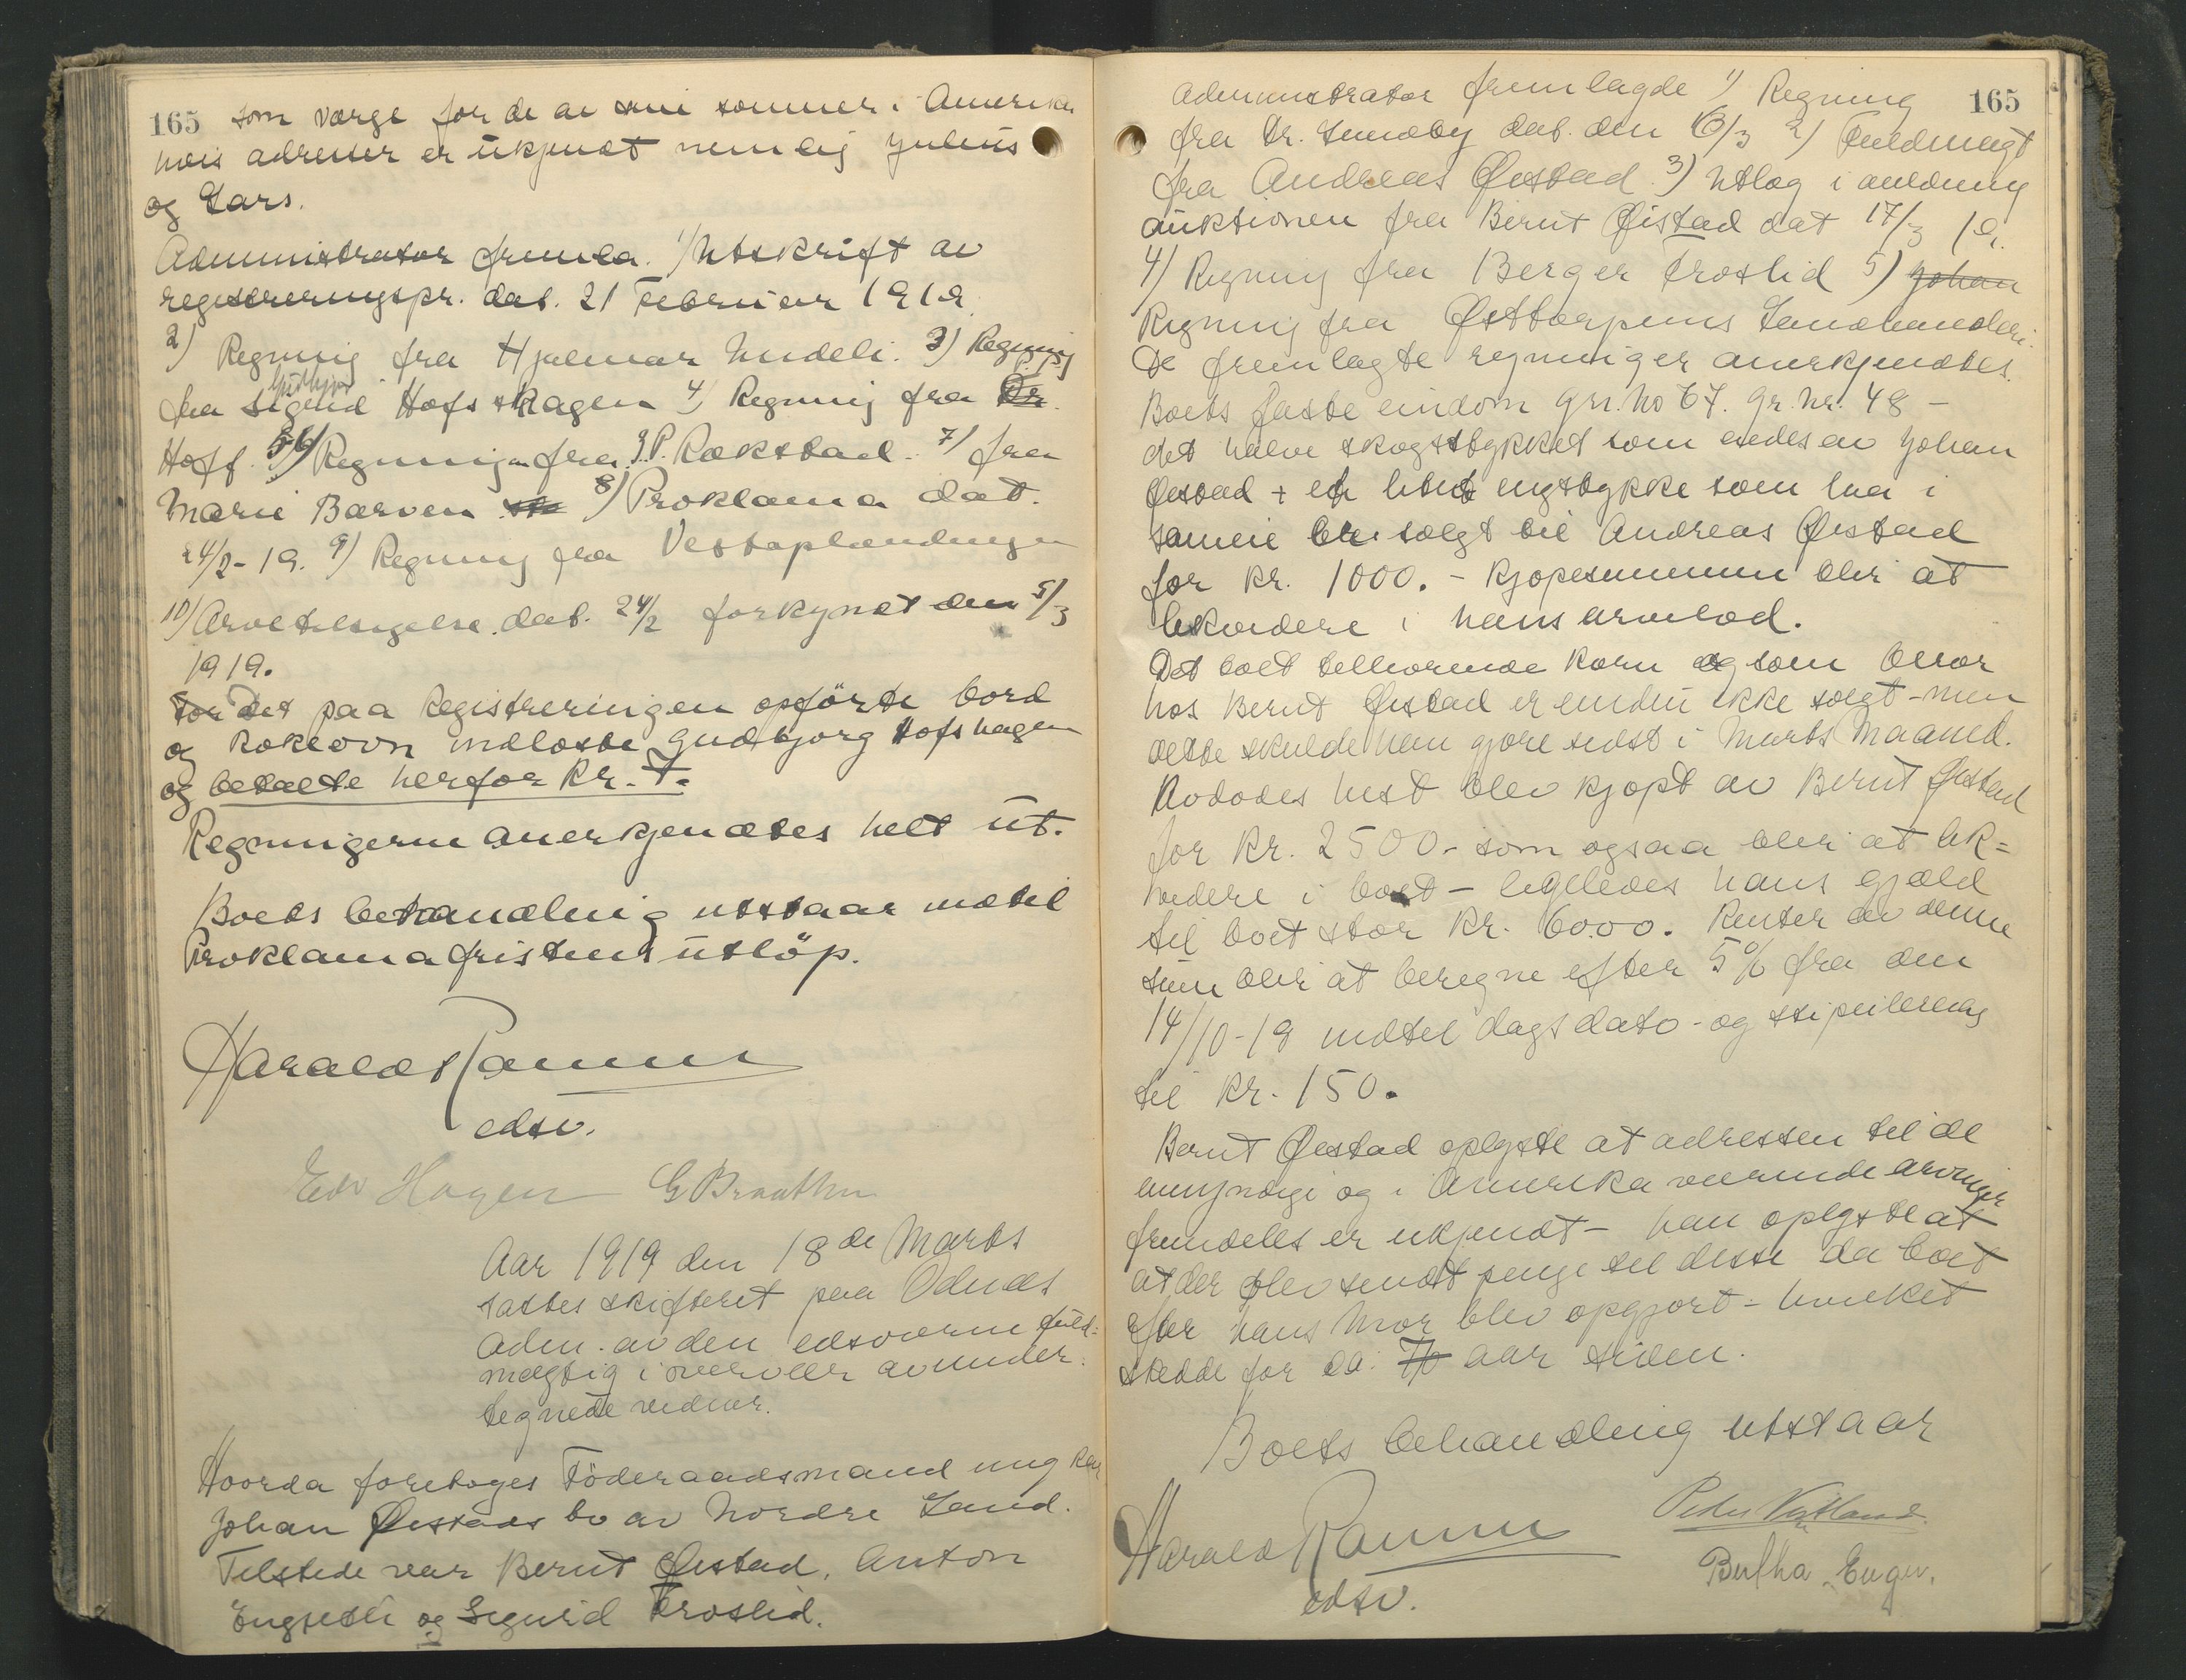 165 som værge for de av sine sønner i Amerika
hvis adresser er ukjendt nemlig Julius
og Lars.
Administrator fremla. 1) Utskrift av
registreringspr. dat. 21 Februar 1919.
2) Regning fra Hjalmar Lundeli. 3) Regning
fra Gudbjør Hofshagen 4) Regning fra Dr.
Hoff. 5-6) Regninger fra J.P. Rækstad. 7) fra
Marie Barven 8) Proklama dat.
24/2-19. 9) Regning fra Vestoplændingen
10) Arvetilsigelse dat. 24/2 forkynt den 5/3
1919.
For Det paa Registreringen opførte bord
og kokeovn indløste Gudbjørg Hofshagen
og betalte herfor kr. 7.
Regningerne anerkjendtes helt ut.
Boets behandling utstaar indtil
Proklamafristens utløp.
Harald Ramm
edsv.
Edv Hagen G Braathen
Aar 1919 den 18de Marts
sattes skifteret paa Odnæs
Adm. av den edsvorne fuld-
mægtig i overvær av under-
tegnede vidner.
Hvorda foretoges Föderaadsmand ungkar
Johan Øistads bo av Nordre Land.
Tilstede var Bernt Øistad, Anton
Engseth og Sigurd Froslid.
165
Administrator fremlagde 1) Regning
fra Dr. Lundby dat. den 16/3 2) Fuldmagt
fra Andreas Øistad 3) Utlæg i anledning
auktionen fra Bernt Øistad dat 17/3 19.
4) Regning fra Berger Froslid 5) Johan
Regning fra Østtorpens Landhandleri.
De fremlagte regninger anerkjendtes.
Boets faste eindom gn. No 67. Br. nr. 48 -
det halve skogstykket som eiedes av Johan
Øistad + et litet engstykke som laa i
sameie ble solgt til Andreas Øistad
for kr. 1000. - Kjøpesummen blir at
likvidere i hans arvelod.
Det boet tilhørende korn og som beror
hos Bernt Øistad er endnu ikke solgt - men
dette skulde han gjøre sidst i Marts Maaned.
Avdødes hest blev kjøpt av Bernt Øistad
for kr. 2500.- som ogsaa blir at lik=
videre i boet - ligeledes hans gjæld
til boet stor kr. 6000. Renter av denne
sum blir at beregne efter 5% fra den
14/10-18 indtil dags dato - og stipuleres
til kr. 150.
Bernt Øistad oplyste at adressen til de
umyndige og i Amerika værende arvinger
fremdeles er ukjendt - han oplyste at
at der blev sendt penge til disse da boet
efter hans Mor blev opgjort - hvilket
skedde for ca. 7/8 aar siden.
Boets behandling utstaar
Harald Ramm
edsv.
Peder
Bertha Enger.